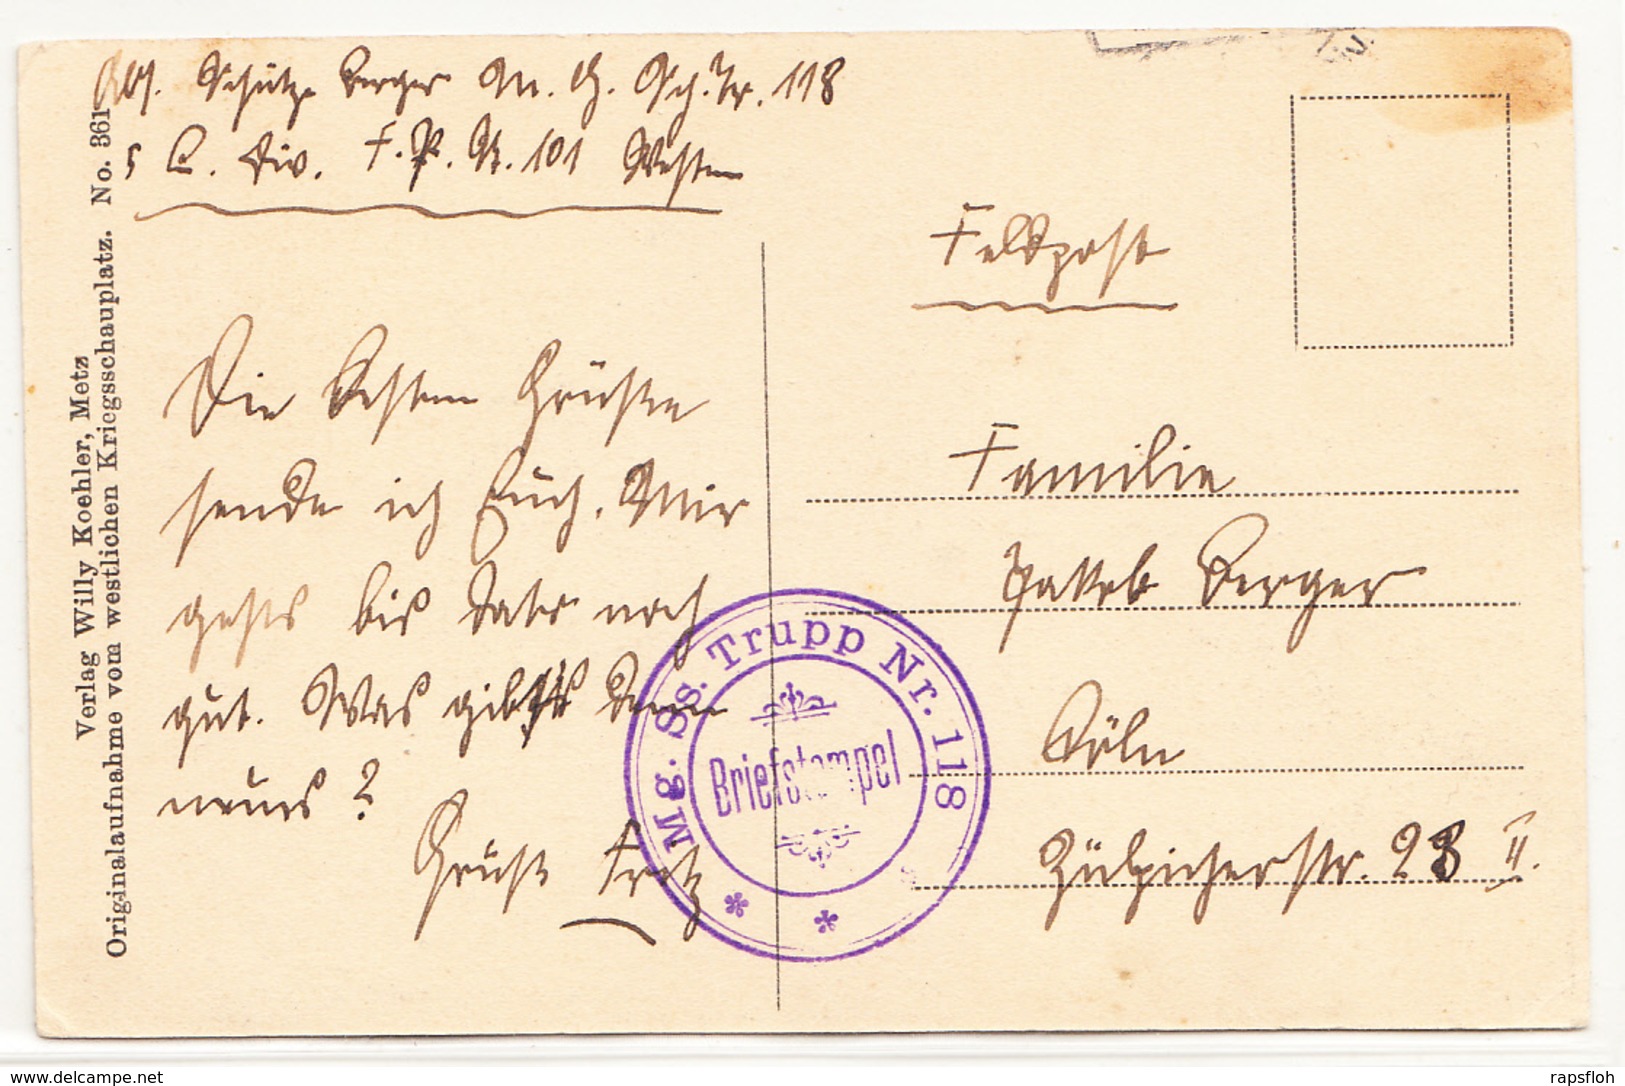 Abs. Schütze Berger M. G. Sch. Tr. 118
5 C. Div. F. P. St. 101 Westen
Feldpost
Die besten Grüsse
sende ich Euch. Mir
gehts bis dato noch
gut. Was gibts denn
neues?
Gruss Fritz
Familie
Jakob Berger
Cöln
Zülpicherstr. 23 II.
Mg. Ss. Trupp Nr. 118
Briefstempel
Verlag Willy Koehler, Metz
Originalaufnahme vom westlichen Kriegsschauplatz. No. 361
www.delcampe.net
rapsfloh